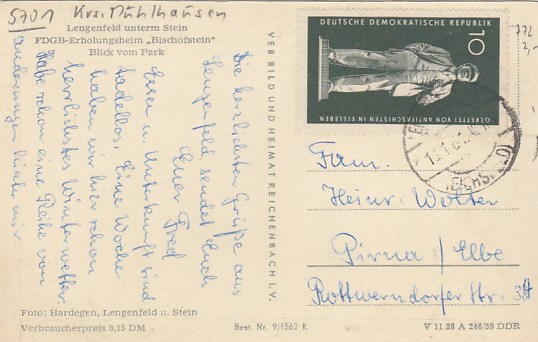 5701 Krs. Mühlhausen
Lengenfeld unterm Stein
FDGB-Erholungsheim „Bischofstein"
Blick vom Park
Die herzlichsten Grüße aus
Lengenfeld sendet Euch
Euer Fred
Essen u. Unterkunft sind
tadellos. Eine Woche
haben wir hier schon
herrlichstes Winterwetter.
Habe schon eine Reihe von
Wanderungen hinter mir.
Foto: Hardegen, Lengenfeld u. Stein
Verbraucherpreis 0,15 DM
VEB BILD UND HEIMAT REICHENBACH I. V.
Best. Nr. 9/1562 K
DEUTSCHE DEMOKRATISCHE REPUBLIK
10
GERETTET VON ANTIFASCHISTEN IN EISLEBEN
(EICHSFELD)
772
2,-
Fam.
Heinz Wolter
Pirna / Elbe
Rottwerndorfer Str. 34
V 11 28 A 266/59 DDR